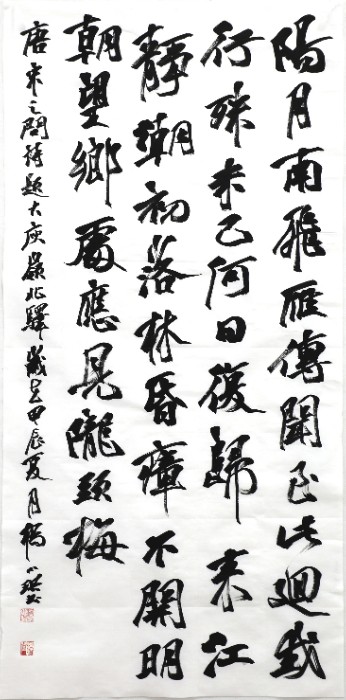 陽月南飛雁傳聞至此迴我
行殊未已何日復歸来江
靜潮初落林昏瘴不開明
朝望鄉處應見隴頭梅
唐宋之問詩題大庾嶺北驛歲在甲辰夏月楊